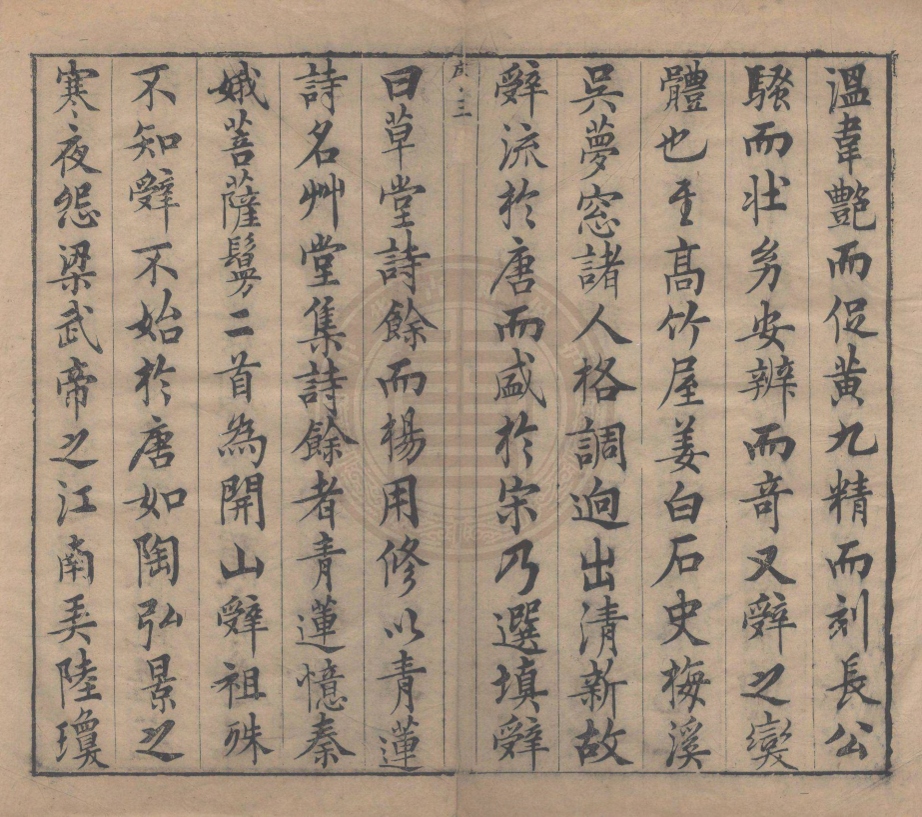 溫韋艷而促黃九精而刻長公
騷而壯幼安辨而奇又辭之變
體也至高竹屋姜白石史梅溪
吳夢窓諸人格調迥出清新故
辭流於唐而盛於宋乃選填辭
序 三
曰草堂詩餘而楊用修以青蓮
詩名艸堂集詩餘者青蓮憶秦
娥菩薩鬘二首為開山辭祖殊
不知辭不始於唐如陶弘景之
寒夜怨梁武帝之江南弄陸瓊